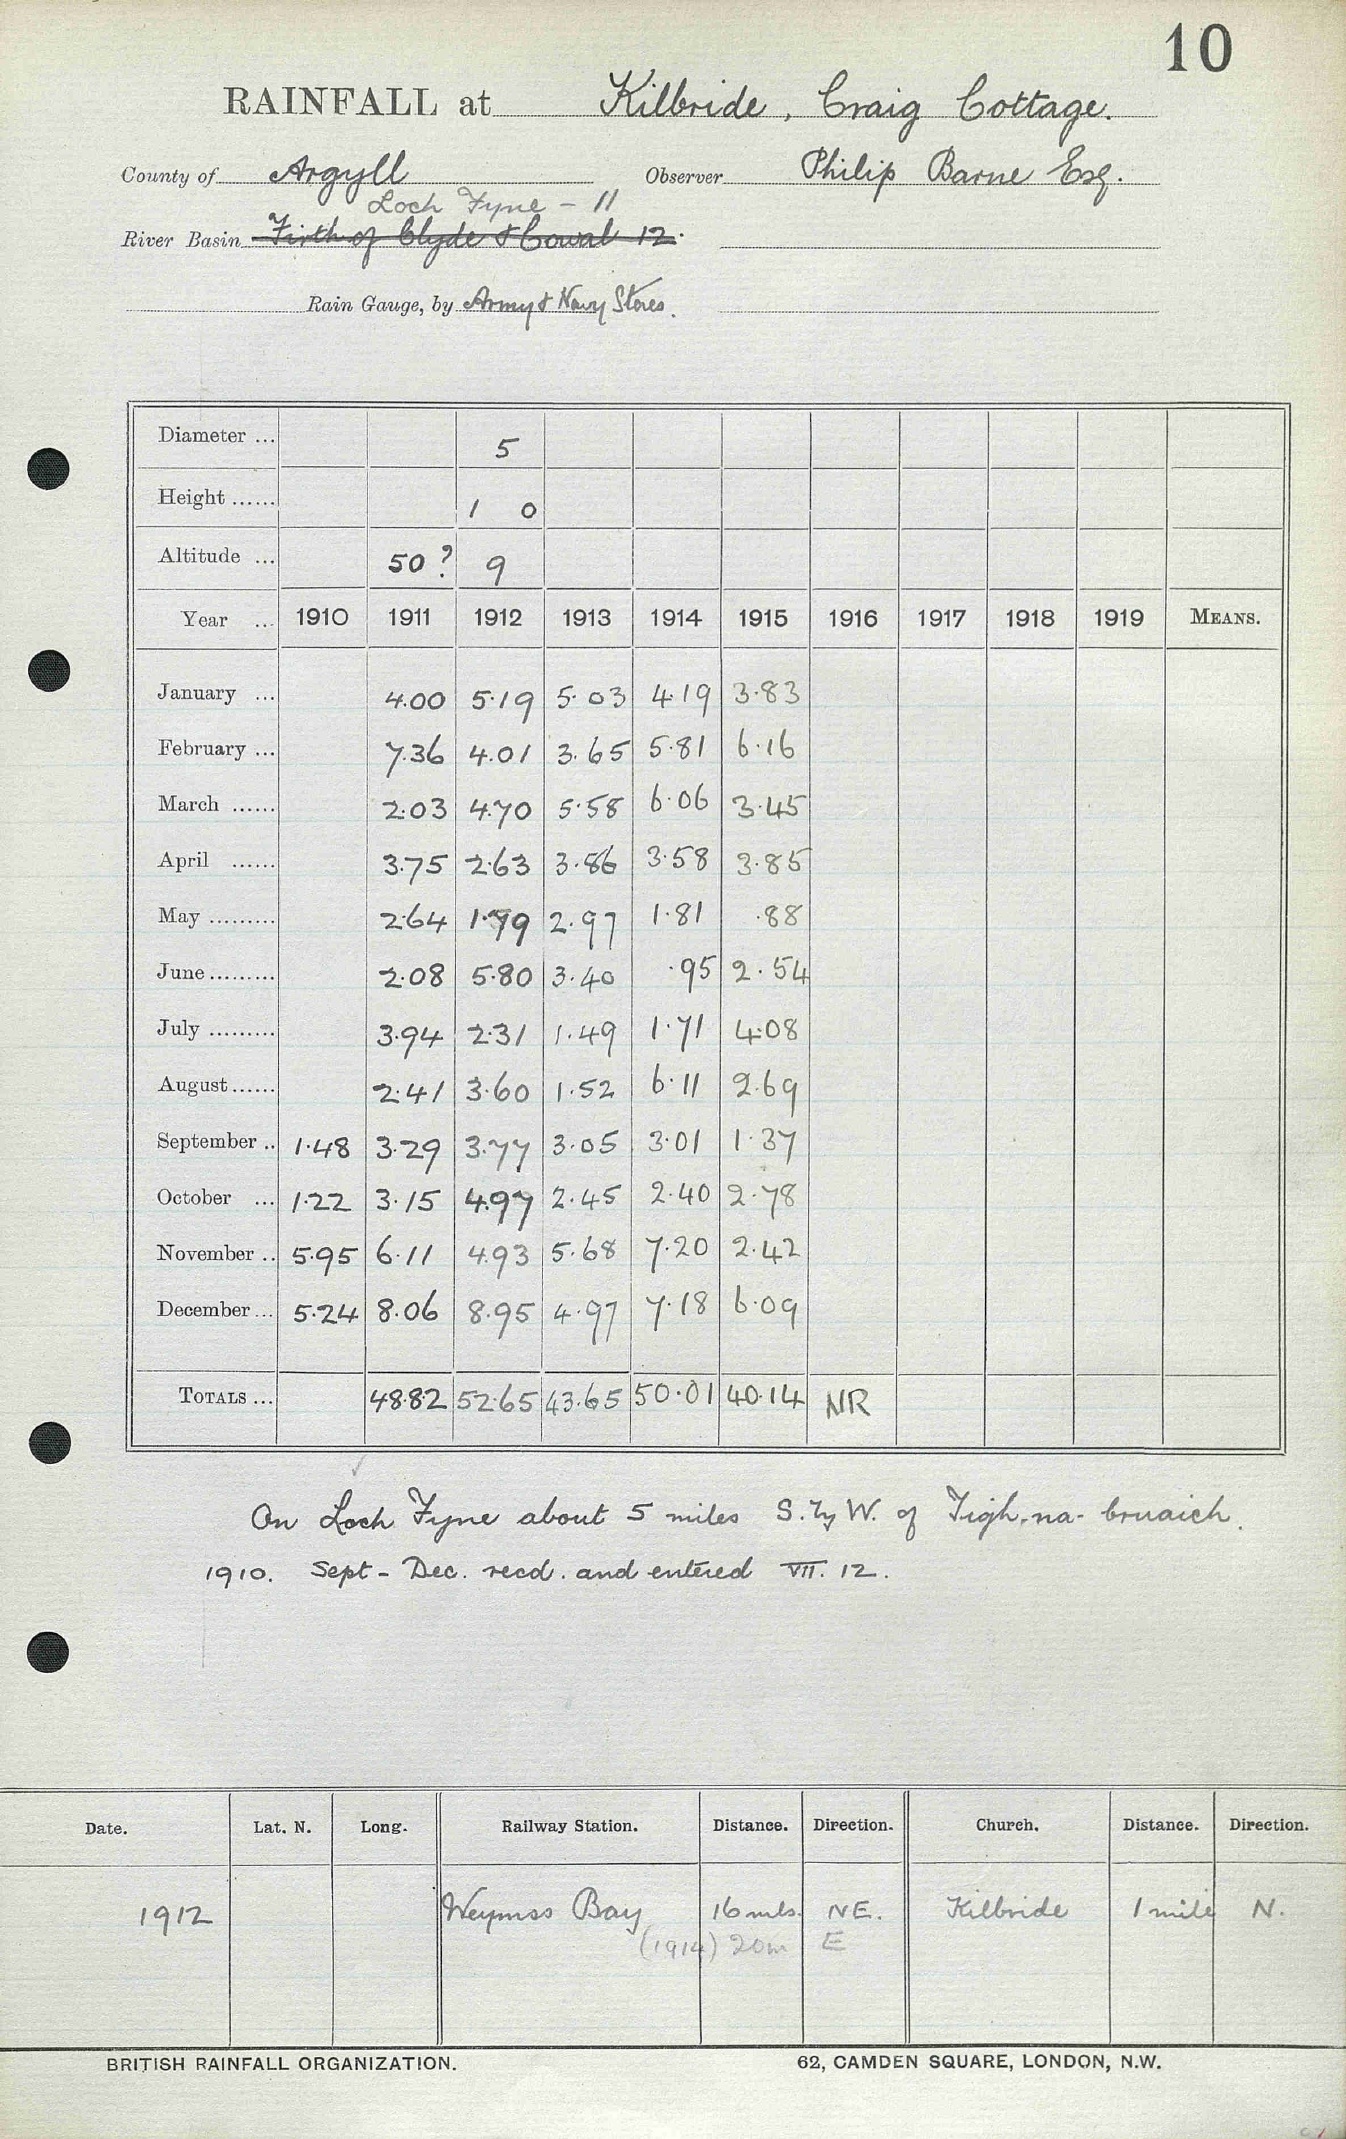 10
RAINFALL at Kilbride, Craig Cottage.
County of Argyll Observer Philip Barne Esq.
Loch Fyne - 11
River Basin Firth of Clyde & Cowal 12.
Rain Gauge, by Army & Navy Stores.
Diameter ... 5
Height ...... 1 0
Altitude ... 50? 9
Year ... 1910 1911 1912 1913 1914 1915 1916 1917 1918 1919 MEANS.
January ... 4.00 5.19 5.03 4.19 3.83
February ... 7.36 4.01 3.65 5.81 6.16
March ...... 2.03 4.70 5.58 6.06 3.45
April ...... 3.75 2.63 3.86 3.58 3.85
May ......... 2.64 1.79 2.97 1.81 .88
June ......... 2.08 5.80 3.40 .95 2.54
July ......... 3.94 2.31 1.49 1.71 4.08
August ...... 2.41 3.60 1.52 6.11 2.69
September .. 1.48 3.29 3.77 3.05 3.01 1.37
October ... 1.22 3.15 4.97 2.45 2.40 2.78
November .. 5.95 6.11 4.93 5.68 7.20 2.42
December ... 5.24 8.06 8.95 4.97 7.18 6.09
TOTALS ... 48.82 52.65 43.65 50.01 40.14 NR
On Loch Fyne about 5 miles S. by W. of Tigh-na-bruaich.
1910. Sept - Dec. recd. and entered VII. 12.
Date. Lat. N. Long. Railway Station. Distance. Direction. Church. Distance. Direction.
1912 Weymss Bay 16 mls. NE. Kilbride 1 mile N.
(1914) 20m E
BRITISH RAINFALL ORGANIZATION. 62, CAMDEN SQUARE, LONDON, N.W.